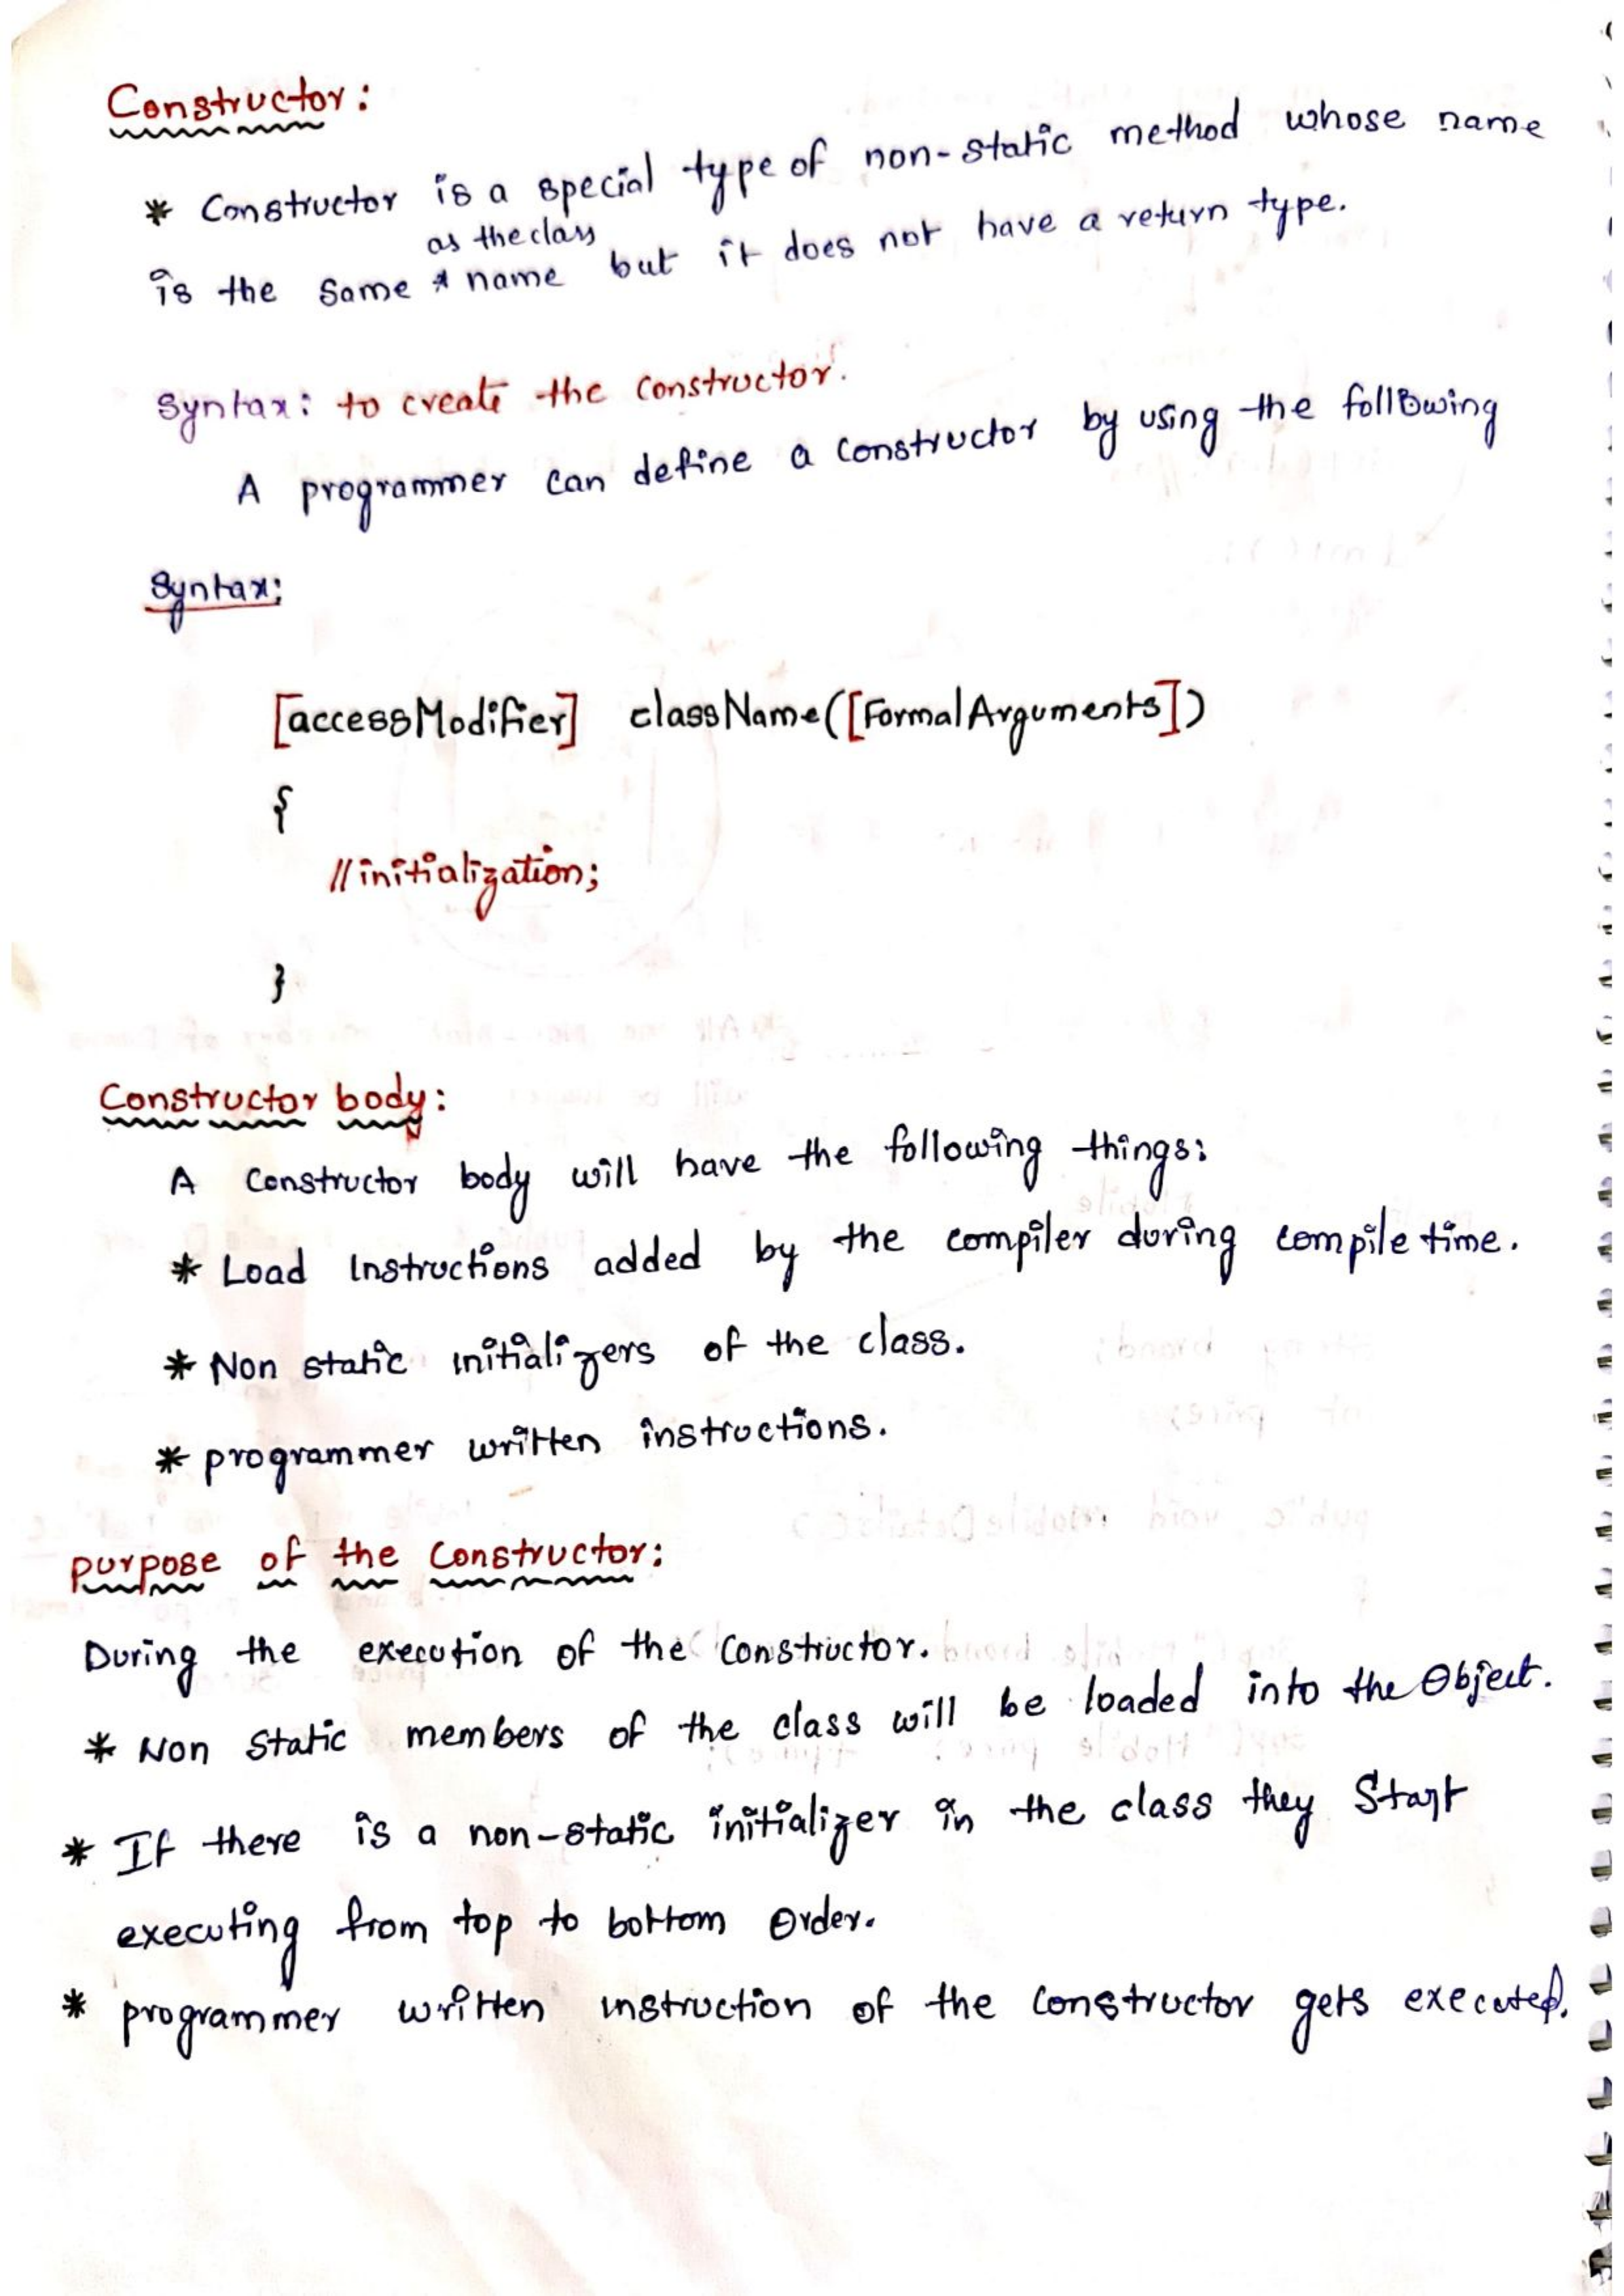 Constructor:
* Constructor is a special type of non-static method whose name
as the class
is the same * name but it does not have a return type.
Syntax: to create the constructor.
A programmer can define a constructor by using the following
Syntax:
[accessModifier] className([FormalArguments])
{
//initialization;
}
Constructor body:
A constructor body will have the following things:
* Load Instructions added by the compiler during compile time.
* Non static initializers of the class.
* programmer written instructions.
purpose of the constructor:
During the execution of the constructor.
* Non static members of the class will be loaded into the Object.
* If there is a non-static initializer in the class they start
executing from top to bottom Order.
* programmer written instruction of the constructor gets executed.